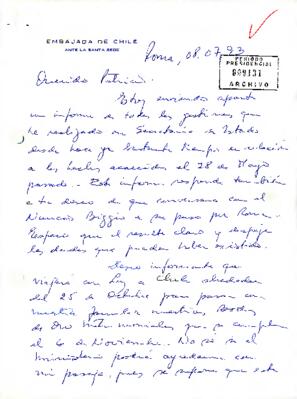 EMBAJADA DE CHILE
ANTE LA SANTA SEDE
Roma, 08.07.93
PERIODO
PRESIDENCIAL
009131
ARCHIVO
Querido Patricio:
Estoy enviando aparte
un informe de todas las gestiones que
he realizado en Secretaría de Estado
desde hace ya bastante tiempo en relación
a los hechos acaecidos el 28 de Mayo
pasado. Este informe responde también
a tu deseo de que conversara con el
Nuncio Biggio a su paso por Roma.
Espero que el resulte claro y despeje
las dudas que puedan haber existido.
Deseo informarte que
viajaré con Luz a Chile alrededor
del 25 de Octubre para pasar con
nuestra familia nuestras Bodas
de Oro matrimoniales que se cumplen
el 6 de Noviembre. No sé si el
Ministerio podrá ayudarme con
mi pasaje, pues se supone que este